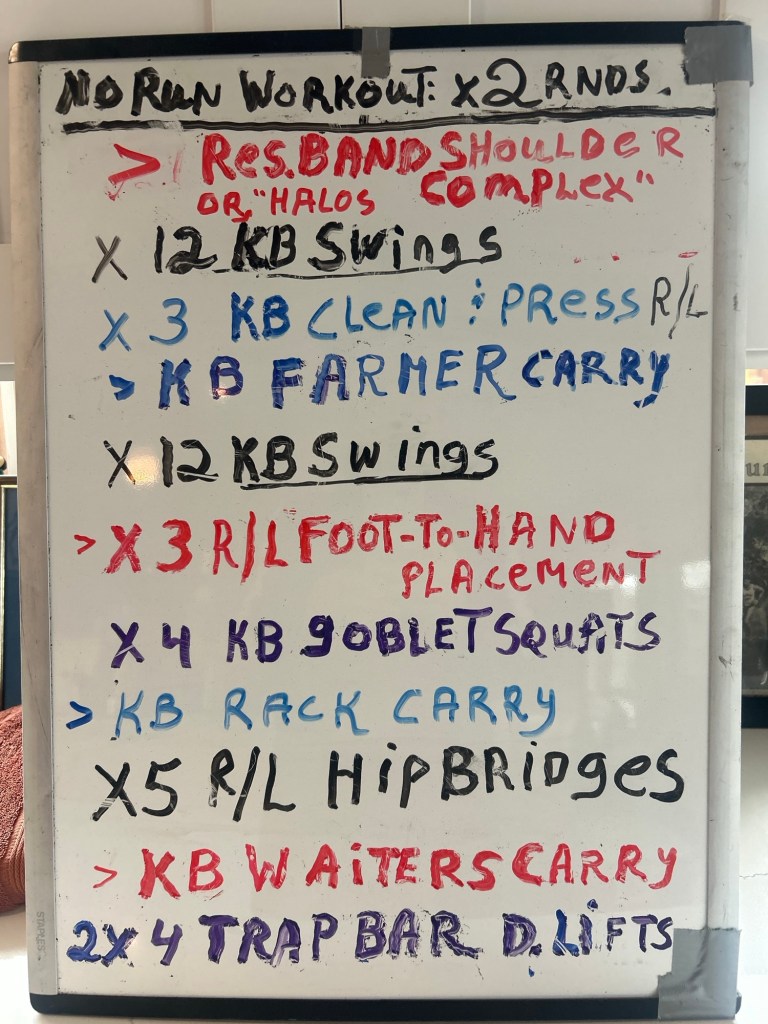 NO RUN WORKOUT: x2 RNDS.
> Res. BAND SHOULDER
OR, "HALOS COMPLEX"
X 12 KB Swings
X 3 KB CLEAN & PRESS R/L
> KB FARMER CARRY
X 12 KB Swings
> X 3 R/L FOOT-TO-HAND
PLACEMENT
X 4 KB gOBLET SQUATS
> KB RACK CARRY
X5 R/L HipBRiDges
> KB WAITERS CARRY
2x4 TRAP BAR D. LiFTS
STAPLES